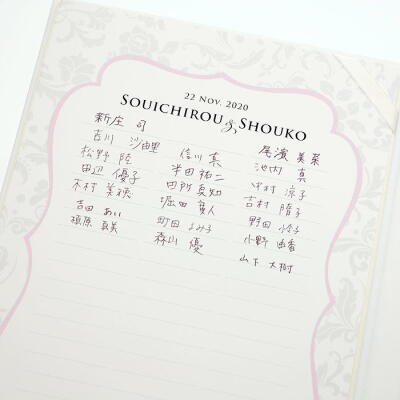 22 NOV. 2020
SOUICHIROU & SHOUKO
新庄 司
吉川 沙由里 信川 真 尾濱 美菜
松野 陸 半田 祐二 池内 真
田辺 優子 田所 真知 中村 涼子
木村 美穂 堀田 真人 吉村 晴子
吉田 あい 町田 よみ子 野田 玲子
植原 真美 森山 優 小野 由香
山下 大樹